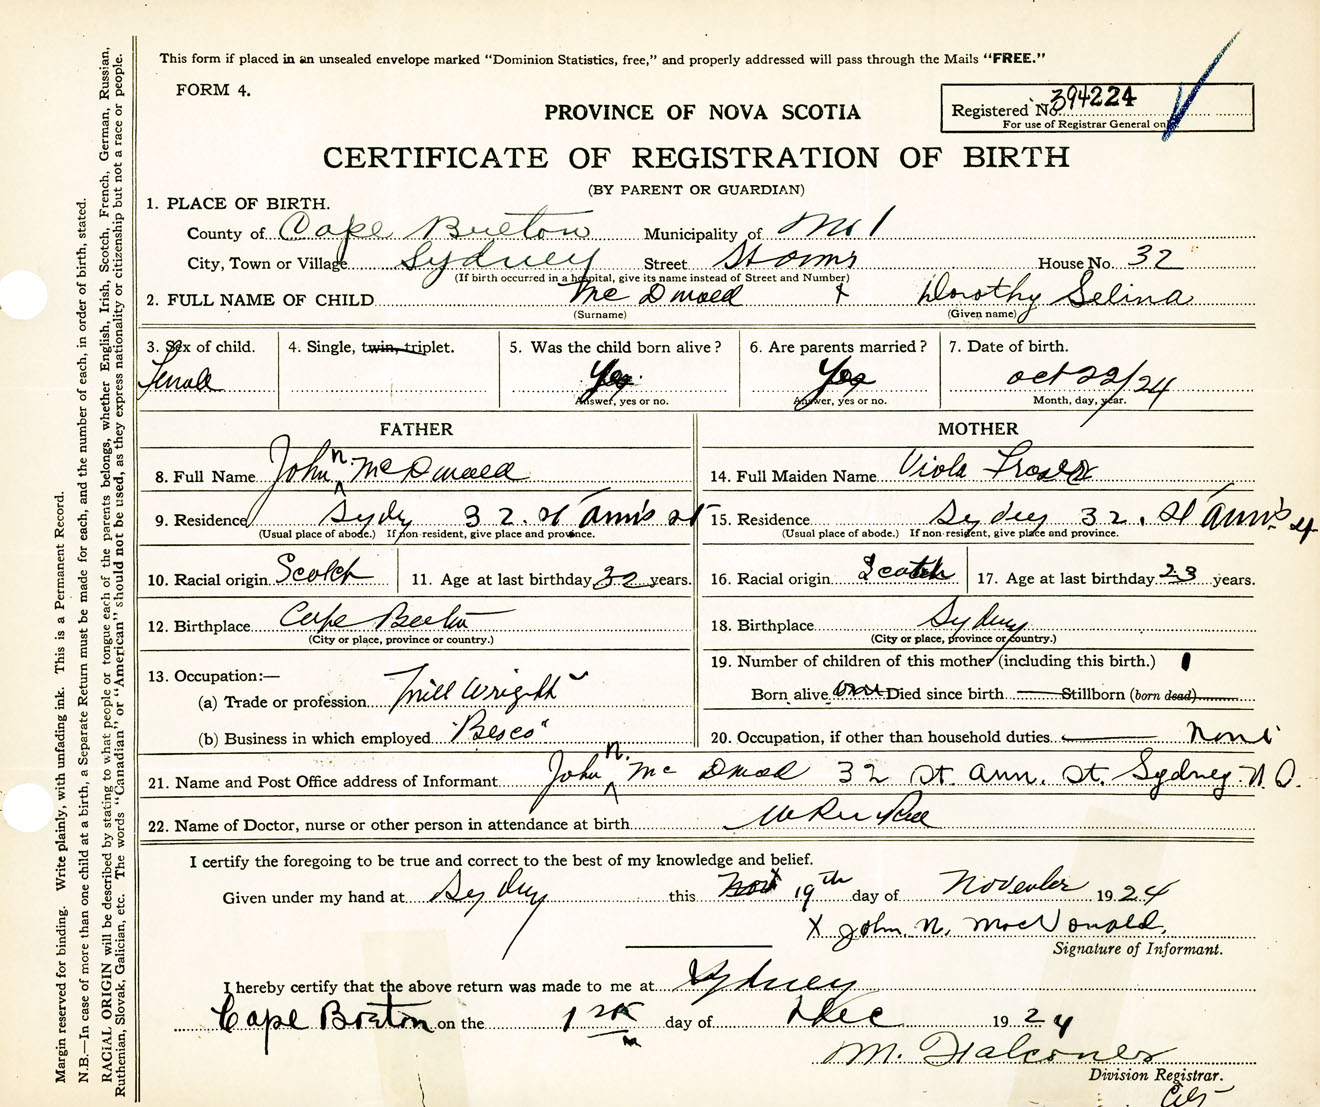 This form if placed in an unsealed envelope marked "Dominion Statistics, free," and properly addressed will pass through the Mails "FREE."
FORM 4.
PROVINCE OF NOVA SCOTIA
Registered No. 394224
For use of Registrar General only
CERTIFICATE OF REGISTRATION OF BIRTH
(BY PARENT OR GUARDIAN)
1. PLACE OF BIRTH.
County of Cape Breton Municipality of No 1
City, Town or Village Sydney Street St Anns House No. 32
(If birth occurred in a hospital, give its name instead of Street and Number)
2. FULL NAME OF CHILD McDonald Dorothy Selina
(Surname) (Given name)
3. Sex of child. 4. Single, twin, triplet. 5. Was the child born alive? 6. Are parents married? 7. Date of birth.
Female Yes Yes Oct 22/24
Answer, yes or no. Answer, yes or no. Month, day, year.
FATHER MOTHER
8. Full Name John N. McDonald 14. Full Maiden Name Viola Fraser
9. Residence Sydney 32. St Ann's St 15. Residence Sydney 32. St Ann's St
(Usual place of abode.) If non-resident, give place and province. (Usual place of abode.) If non-resident, give place and province.
10. Racial origin Scotch 11. Age at last birthday 32 years. 16. Racial origin Scotch 17. Age at last birthday 23 years.
12. Birthplace Cape Breton 18. Birthplace Sydney
(City or place, province or country.) (City or place, province or country.)
13. Occupation:— 19. Number of children of this mother (including this birth.) 1
(a) Trade or profession Mill Wright Born alive one Died since birth Stillborn (born dead)
(b) Business in which employed "Besco" 20. Occupation, if other than household duties None
21. Name and Post Office address of Informant John N. McDonald 32 St. Ann. St. Sydney N.S.
22. Name of Doctor, nurse or other person in attendance at birth
I certify the foregoing to be true and correct to the best of my knowledge and belief.
Given under my hand at Sydney this Nov 19th day of November 1924
X John. N. MacDonald.
Signature of Informant.
I hereby certify that the above return was made to me at Sydney
Cape Breton on the 1st day of Dec 1924
M. Falconer
Division Registrar.
Margin reserved for binding. Write plainly, with unfading ink. This is a Permanent Record.
N.B.—In case of more than one child at a birth, a Separate Return must be made for each, and the number of each, in order of birth, stated.
RACIAL ORIGIN will be described by stating to what people or tongue each of the parents belongs, whether English, Irish, Scotch, French, German, Russian,
Ruthenian, Slovak, Galician, etc. The words "Canadian" or "American" should not be used, as they express nationality or citizenship but not a race or people.